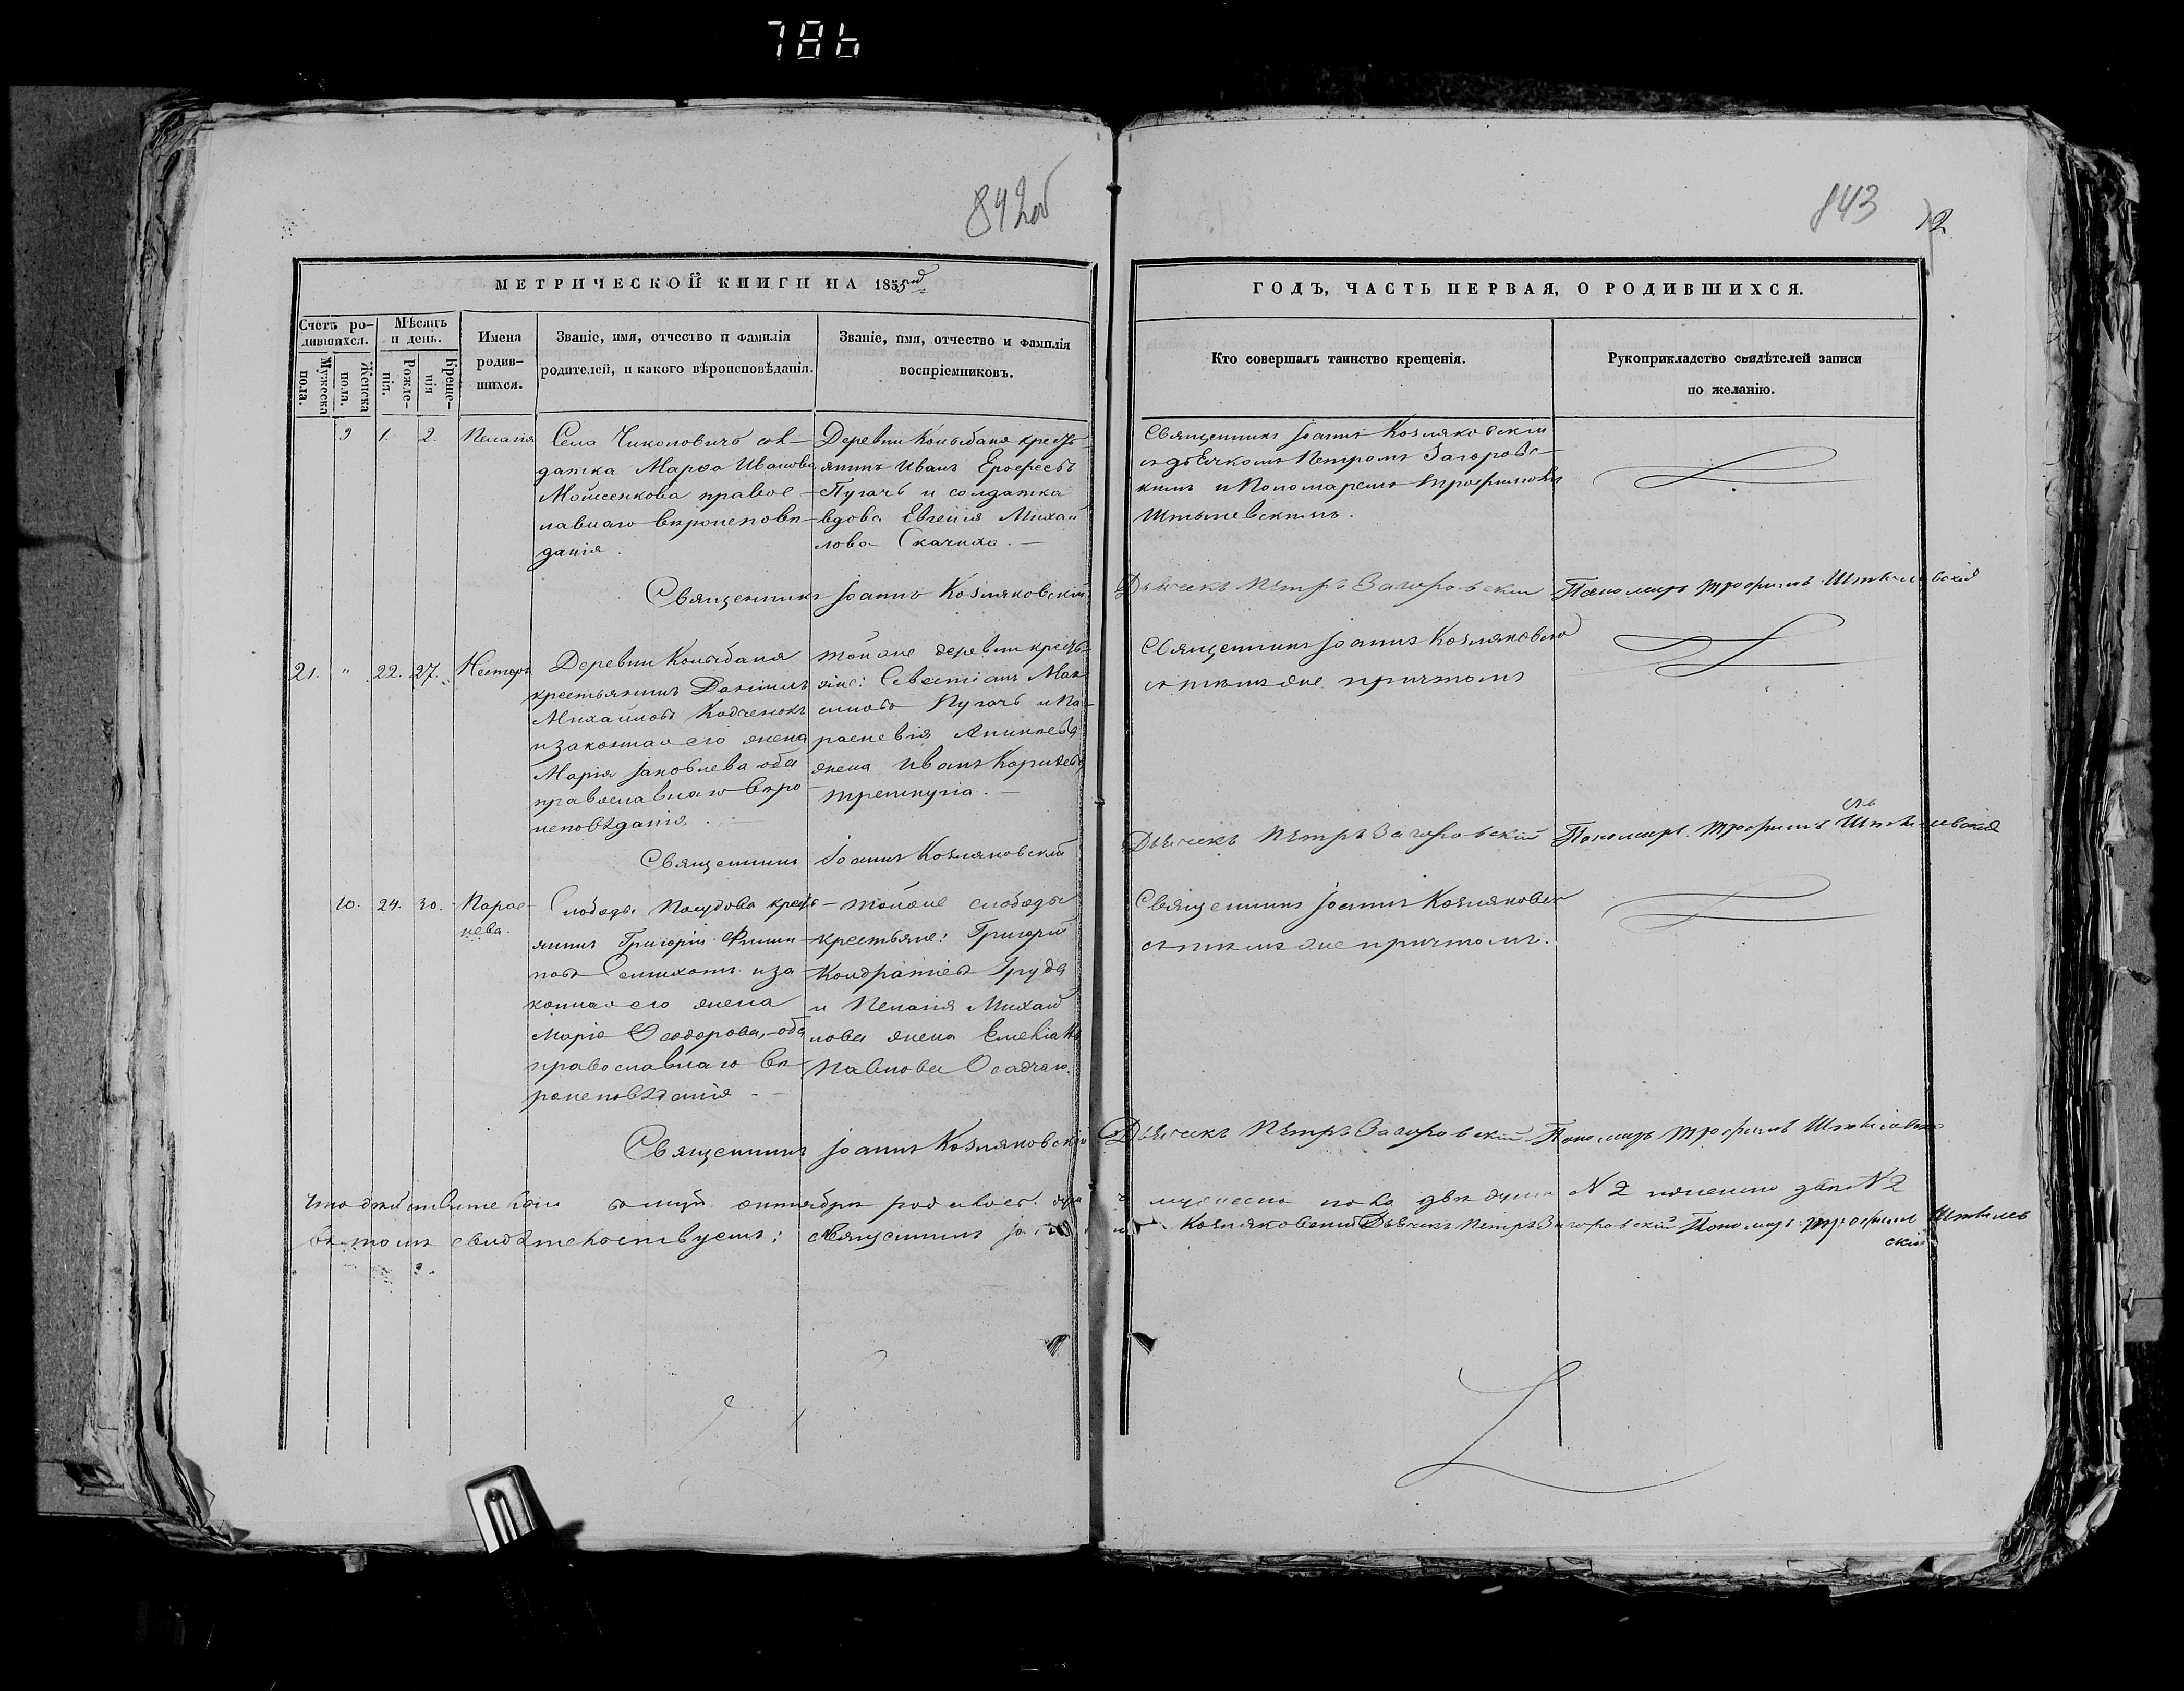 786
842об
843
72
МЕТРИЧЕСКОЙ КНИГИ НА 1855й
ГОДЪ, ЧАСТЬ ПЕРВАЯ, О РОДИВШИХСЯ.
Счетъ ро-
дившихся.
Мужеска
пола.
Женска
пола.
Мѣсяцъ
и день.
Рожде-
нія.
Креще-
нія
Имена
родив-
шихся.
Званіе, имя, отчество и фамилія
родителей, и какого вѣроисповѣданія.
Званіе, имя, отчество и фамилія
воспріемниковъ.
Кто совершалъ таинство крещенія.
Рукоприкладство свидѣтелей записи
по желанію.
9 1. 2. Пелагія
Села Чиколовичъ сол-
датка Марѳа Иванова
Мойсеенкова правос-
лавнаго вѣроисповѣ-
данія.
Деревни Колыбаня кресть-
янинъ Иванъ Ерофеевъ
Пугачъ и солдатка
вдова Евгенія Михай
лова Скачиха. —
Священникъ Іоаннъ Козляковскій
съ дьячкомъ Петромъ Загоровс-
кимъ и Пономаремъ Трофимомъ
Штылевскимъ.
Священникъ Іоаннъ Козляковскій
Дьячекъ Петръ Загоровскій Пономарь Трофимъ Штылевскій
21. " 22. 27. Несторъ
Деревни Колыбаня
крестьянинъ Даніилъ
Михайловъ Кодченокъ
и законная его жена
Марія Іаковлева оба
православнаго вѣро
исповѣданія. —
той же деревни кресть-
яне: Севастіанъ Мак
симовъ Пугачъ и Па-
раскевія
жена Иванъ
Священникъ Іоаннъ Козляковскій
съ тѣмъ же причтомъ
Священникъ Іоаннъ Козляковскій
Дьячекъ Петръ Загоровскій Пономарь Трофимъ Штылевскій
10. 24. 30. Парас-
кева.
Слободы кресть-
янинъ Григорій Филип
повъ и за
конная его жена
Марія Ѳеодорова, оба
православнаго вѣ-
роисповѣданія —
той же слободы
крестьяне: Григорій
Кондратіевъ Груда
и Пелагія Михай
лова жена Емеліана
Павлова Осадчаго.
Священникъ Іоаннъ Козляковск
съ тѣмъ же причтомъ.
Священникъ Іоаннъ Козляковскій
Дьячекъ Петръ Загоровскій Пономарь Трофимъ Штылевск
Что дѣйствительно октября родилось
мужеска пола двѣ души № 2 женска № 2
въ томъ свидѣтельствуемъ: Священникъ
Козляковскій Дьячекъ Петръ Загоровскій Пономарь Трофимъ Штылев
скій